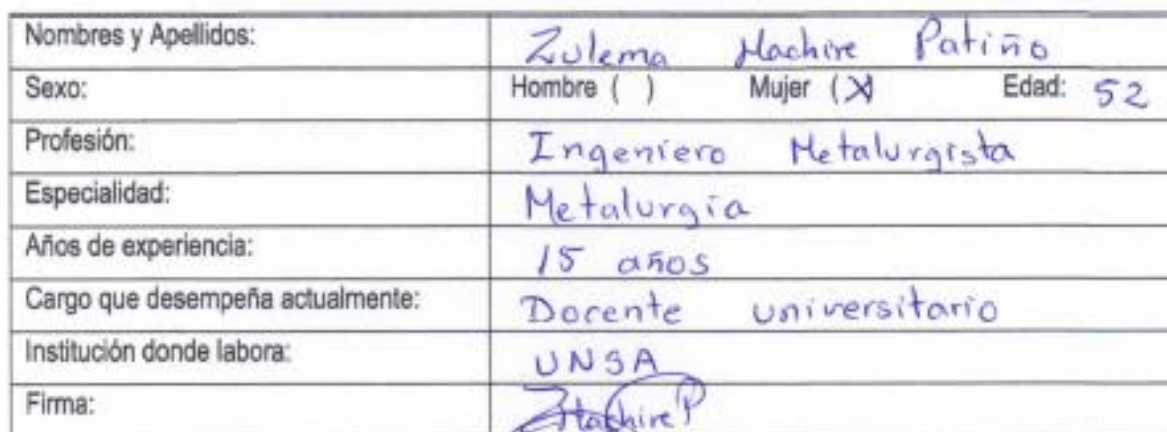 Nombres y Apellidos: Zulema Hachire Patiño
Sexo: Hombre ( ) Mujer (X) Edad: 52
Profesión: Ingeniero Metalurgista
Especialidad: Metalurgia
Años de experiencia: 15 años
Cargo que desempeña actualmente: Docente universitario
Institución donde labora: UNSA
Firma: ZHachireP